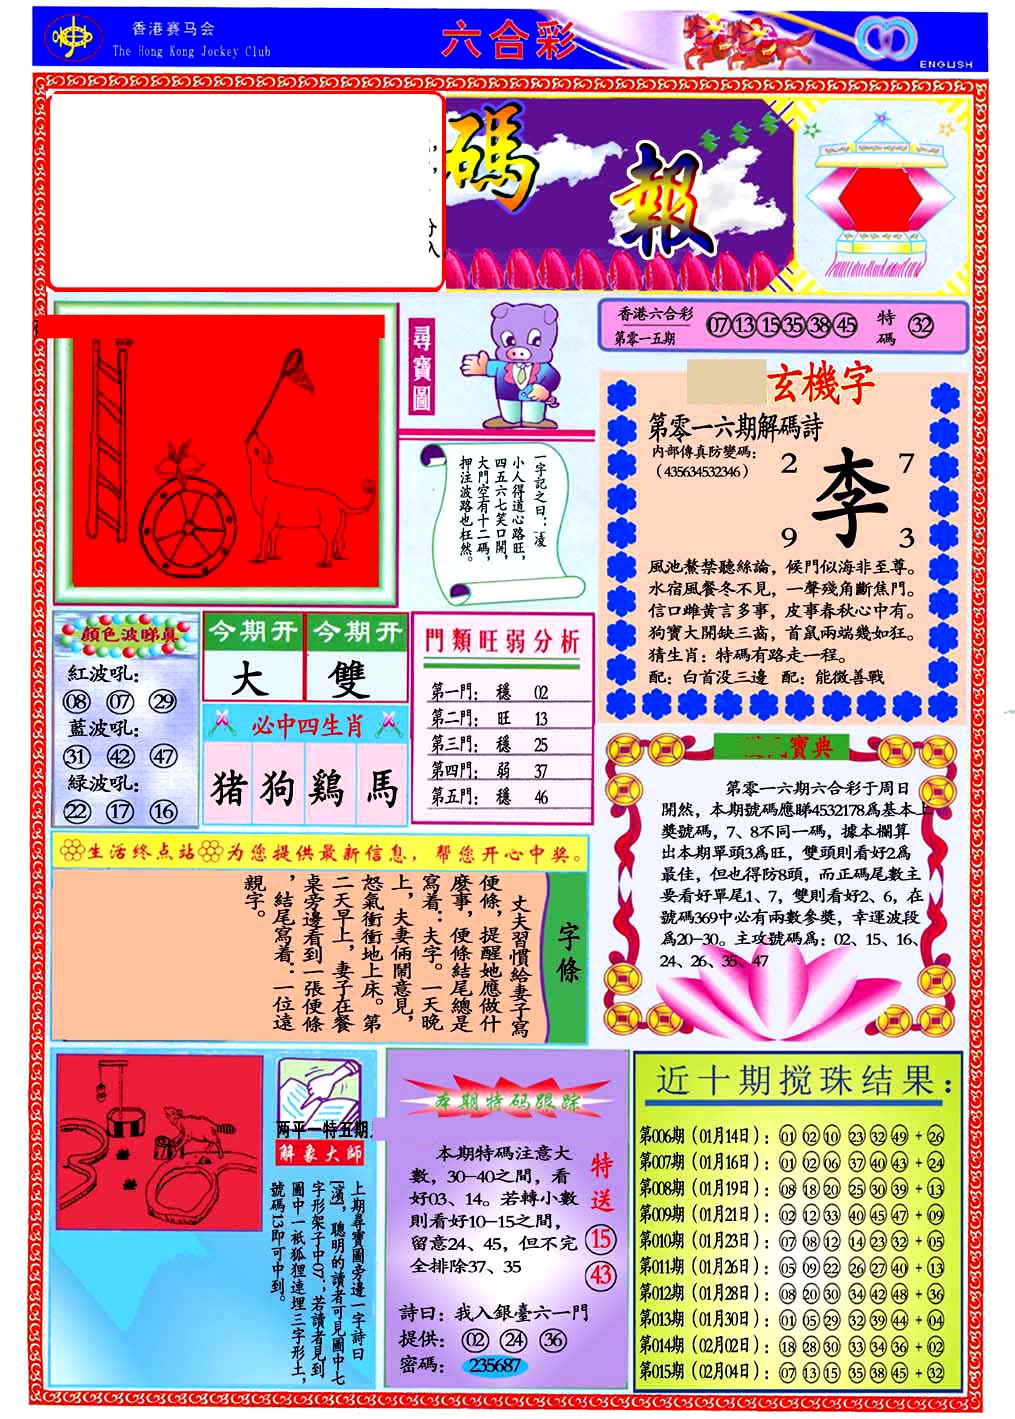 香港赛马会
The Hong Kong Jockey Club
六合彩
ENGLISH
碼報
分
入
尋寶圖
香港六合彩
第零一五期
07 13 15 35 38 45 特碼 32
一字記之曰：凌
小人得道心路旺，
四五六七笑口開，
大門空有十二碼，
押注波路也枉然。
玄機字
第零一六期解碼詩
内部傳真防變碼：
（435634532346）
2 7
李
9 3
風池鰲禁聽絲論，候門似海非至尊。
水宿風餐冬不見，一聲殘角斷焦門。
信口雌黄言多事，皮事春秋心中有。
狗寶大開缺三蓄，首鼠兩端幾如狂。
猜生肖：特碼有路走一程。
配：白首没三邊 配：能微善戰
顔色波睇真
紅波吼：
08 07 29
藍波吼：
31 42 47
緑波吼：
22 17 16
今期开 今期开
大 雙
必中四生肖
猪 狗 鷄 馬
門類旺弱分析
第一門： 穩 02
第二門： 旺 13
第三門： 穩 25
第四門： 弱 37
第五門： 穩 46
寶典
第零一六期六合彩于周日
開然，本期號碼應睇4532178爲基本上
獎號碼，7、8不同一碼，據本欄算
出本期單頭3爲旺，雙頭則看好2爲
最佳，但也得防8頭，而正碼尾數主
要看好單尾1、7，雙則看好2、6，在
號碼369中必有兩數參獎，幸運波段
爲20-30。主攻號碼爲：02、15、16、
24、26、35、47
生活终点站 为您提供最新信息，帮您开心中奖。
字條
丈夫習慣給妻子寫
便條，提醒她應做什
麼事，便條結尾總是
寫着：夫字。一天晚
上，夫妻倆鬧意見，
怒氣衝衝地上床。第
二天早上，妻子在餐
桌旁邊看到一張便條
，結尾寫着：一位遠
親字。
两平一特五期
解象大師
上期尋寶圖旁邊一字詩曰
[濱]，聰明的讀者可見圖中七
字形架子中07；若讀者見到
圖中一衹狐狸連埋三字形土，
號碼13即可中到。
本期特码跟踪
本期特碼注意大
數，30-40之間，看
好03、14。若轉小數
則看好10-15之間，
留意24、45，但不完
全排除37、35
特送
15
43
詩曰：我入銀臺六一門
提供： 02 24 36
密碼： 235687
近十期搅珠结果：
第006期（01月14日）：01 02 10 23 32 49 + 26
第007期（01月16日）：01 02 06 37 40 43 + 24
第008期（01月19日）：08 18 20 25 30 39 + 13
第009期（01月21日）：02 12 33 40 45 47 + 09
第010期（01月23日）：07 08 12 14 23 32 + 05
第011期（01月26日）：05 09 22 26 27 40 + 13
第012期（01月28日）：08 20 30 34 42 48 + 36
第013期（01月30日）：01 05 29 32 39 44 + 04
第014期（02月02日）：18 28 30 33 34 36 + 02
第015期（02月04日）：07 13 15 35 38 45 + 32